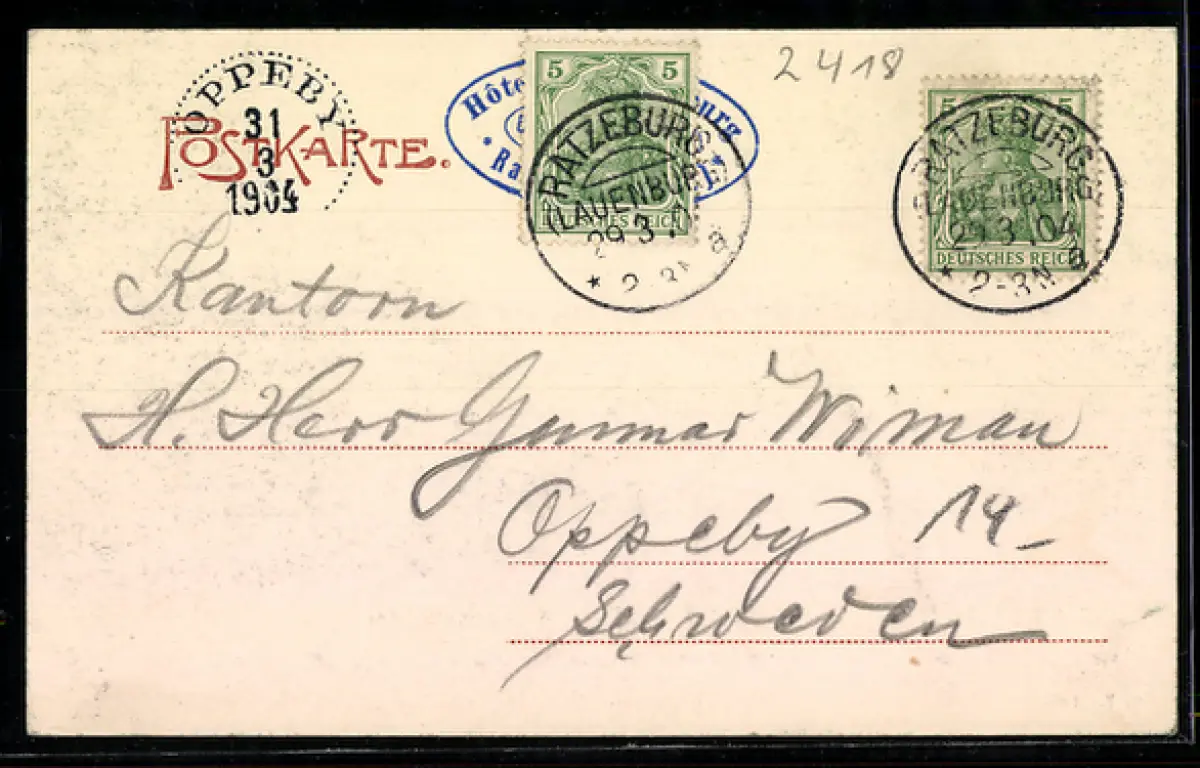 2418
OPPEBY
31
3
1904
POSTKARTE.
Hôte
urg
Ra
5 5
DEUTSCHES REICH
RATZEBURG
(LAUENBURG
29.3
* 2-3N a
5 5
DEUTSCHES REICH
RATZEBURG
(LAUENBURG
29.3.04
* 2-3N a
Kantorn
H. Herr Gunnar Wiman
Oppeby 14
Schweden